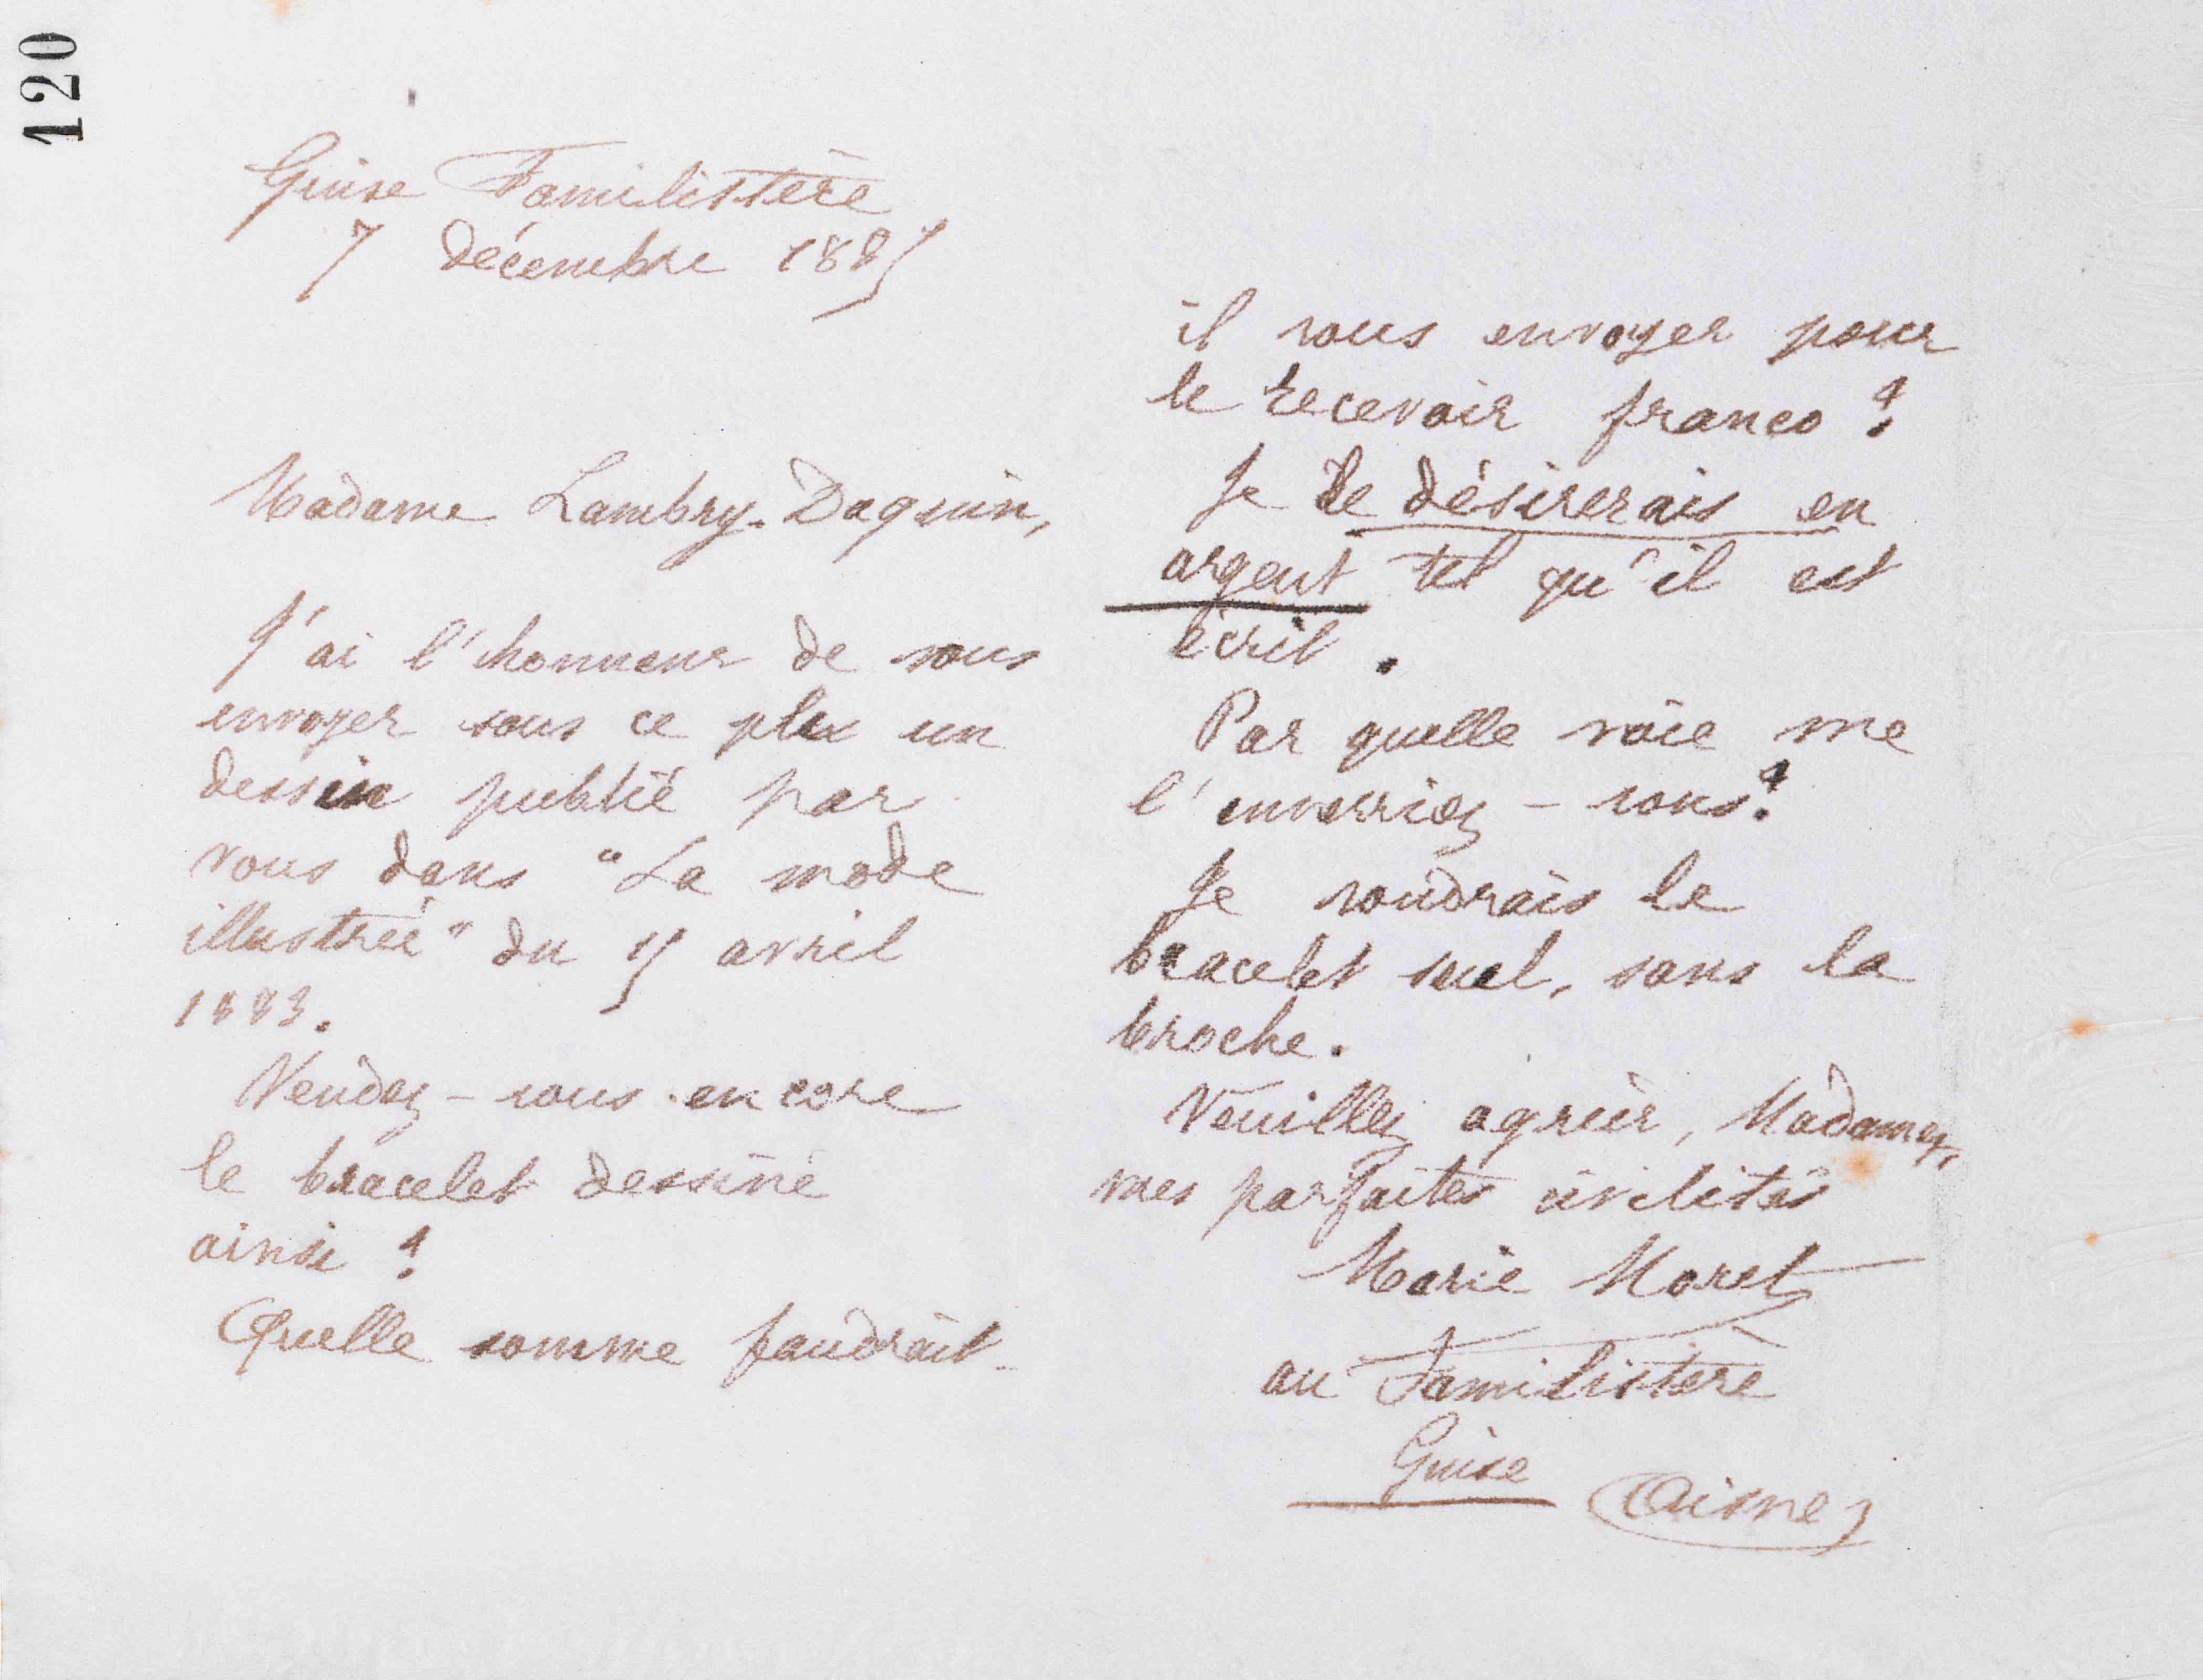 120
Guise Familistère
7 décembre 1885
Madame Lambry-Daquin,
J'ai l'honneur de vous
envoyer sous ce plix un
dessin publié par
vous dans "La mode
illustrée" du 15 avril
1883.
Vendez-vous encore
le bracelet dessiné
ainsi ?
Quelle somme faudrait-
il vous envoyer pour
le recevoir franco ?
Je le désirerais en
argent tel qu'il est
écrit.
Par quelle voie me
l'enverriez-vous ?
Je voudrais le
bracelet seul, sans la
broche.
Veuillez agréer, Madame,
mes parfaites civilités
Marie Moret
au Familistère
Guise (Aisne)